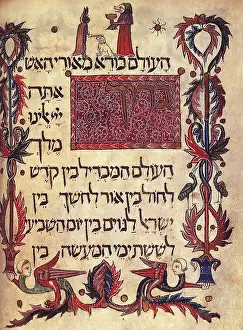 העולם בורא מאורי האש
ברוך
אתה
ייי אלהינו
מלך
העולם המבדיל בין קדש
לחול בין אור לחשך בין
ישראל לגוים בין יום השביעי
לששת ימי המעשה בין